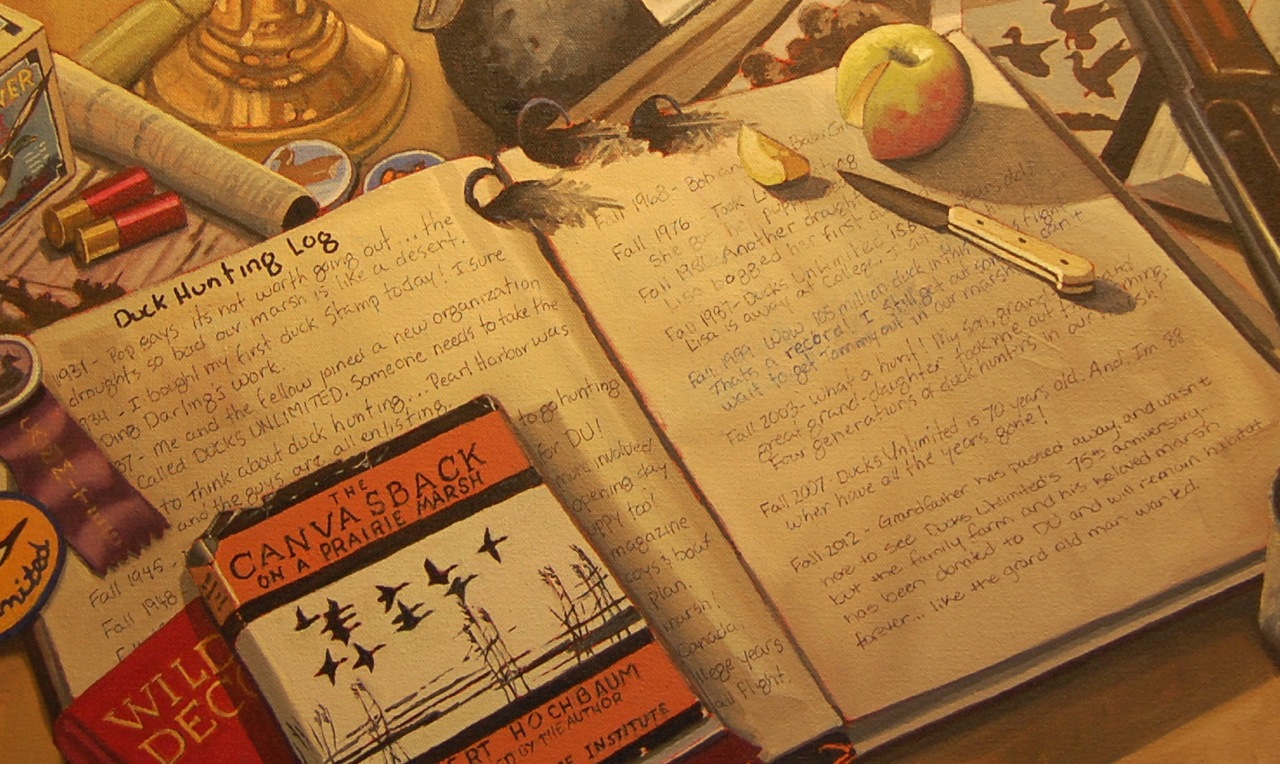 VER
Duck Hunting Log
1931 - Pop says its not worth going out... the
droughts so bad our marsh is like a desert.
934 - I bought my first duck Stamp today! I sure
Ding Darling's work.
37 - Me and the fellow joined a new organization
Called DUCKS UNLIMITED. Someone needs to take the
to think about duck hunting... Pearl Harbor was
and the guys are all enlisting.
Fall 1945 -
Fall 1948
to go hunting
for DU!
more involved
opening day
magazine
boys & bow
plan.
marsh!
Canada,
llege years
fall flight
Fall 1968 - Bob and
Fall 1976 - Took
Fall 198 Another drought
Lisa bagged her first
Fall 1987 - Ducks Unlimited is 50
Lisa is away at College...
Fall 1999 Wow 105 million duck in this flight
Thats a record! I still get out some
wait to get Tommy out in our marsh
Fall 2003 - what a hunt! My son, grand
great grand-daughter took me out
Four generations of duck hunters in our
Fall 2007 - Ducks Unlimited is 70 years old. And, I'm 88
wher have all the years gone!
Fall 2012 - Grandfather has passed away and wasn't
here to see Ducks Unlimited's 75th anniversary...
but the family farm and his beloved marsh
has been donated to DU and will remain habitat
forever... like the grand old man wanted.
nited
WILD
DEC
THE
CANVASBACK
ON A PRAIRIE MARSH
ERT HOCHBAUM
ED BY THE AUTHOR
INSTITUTE